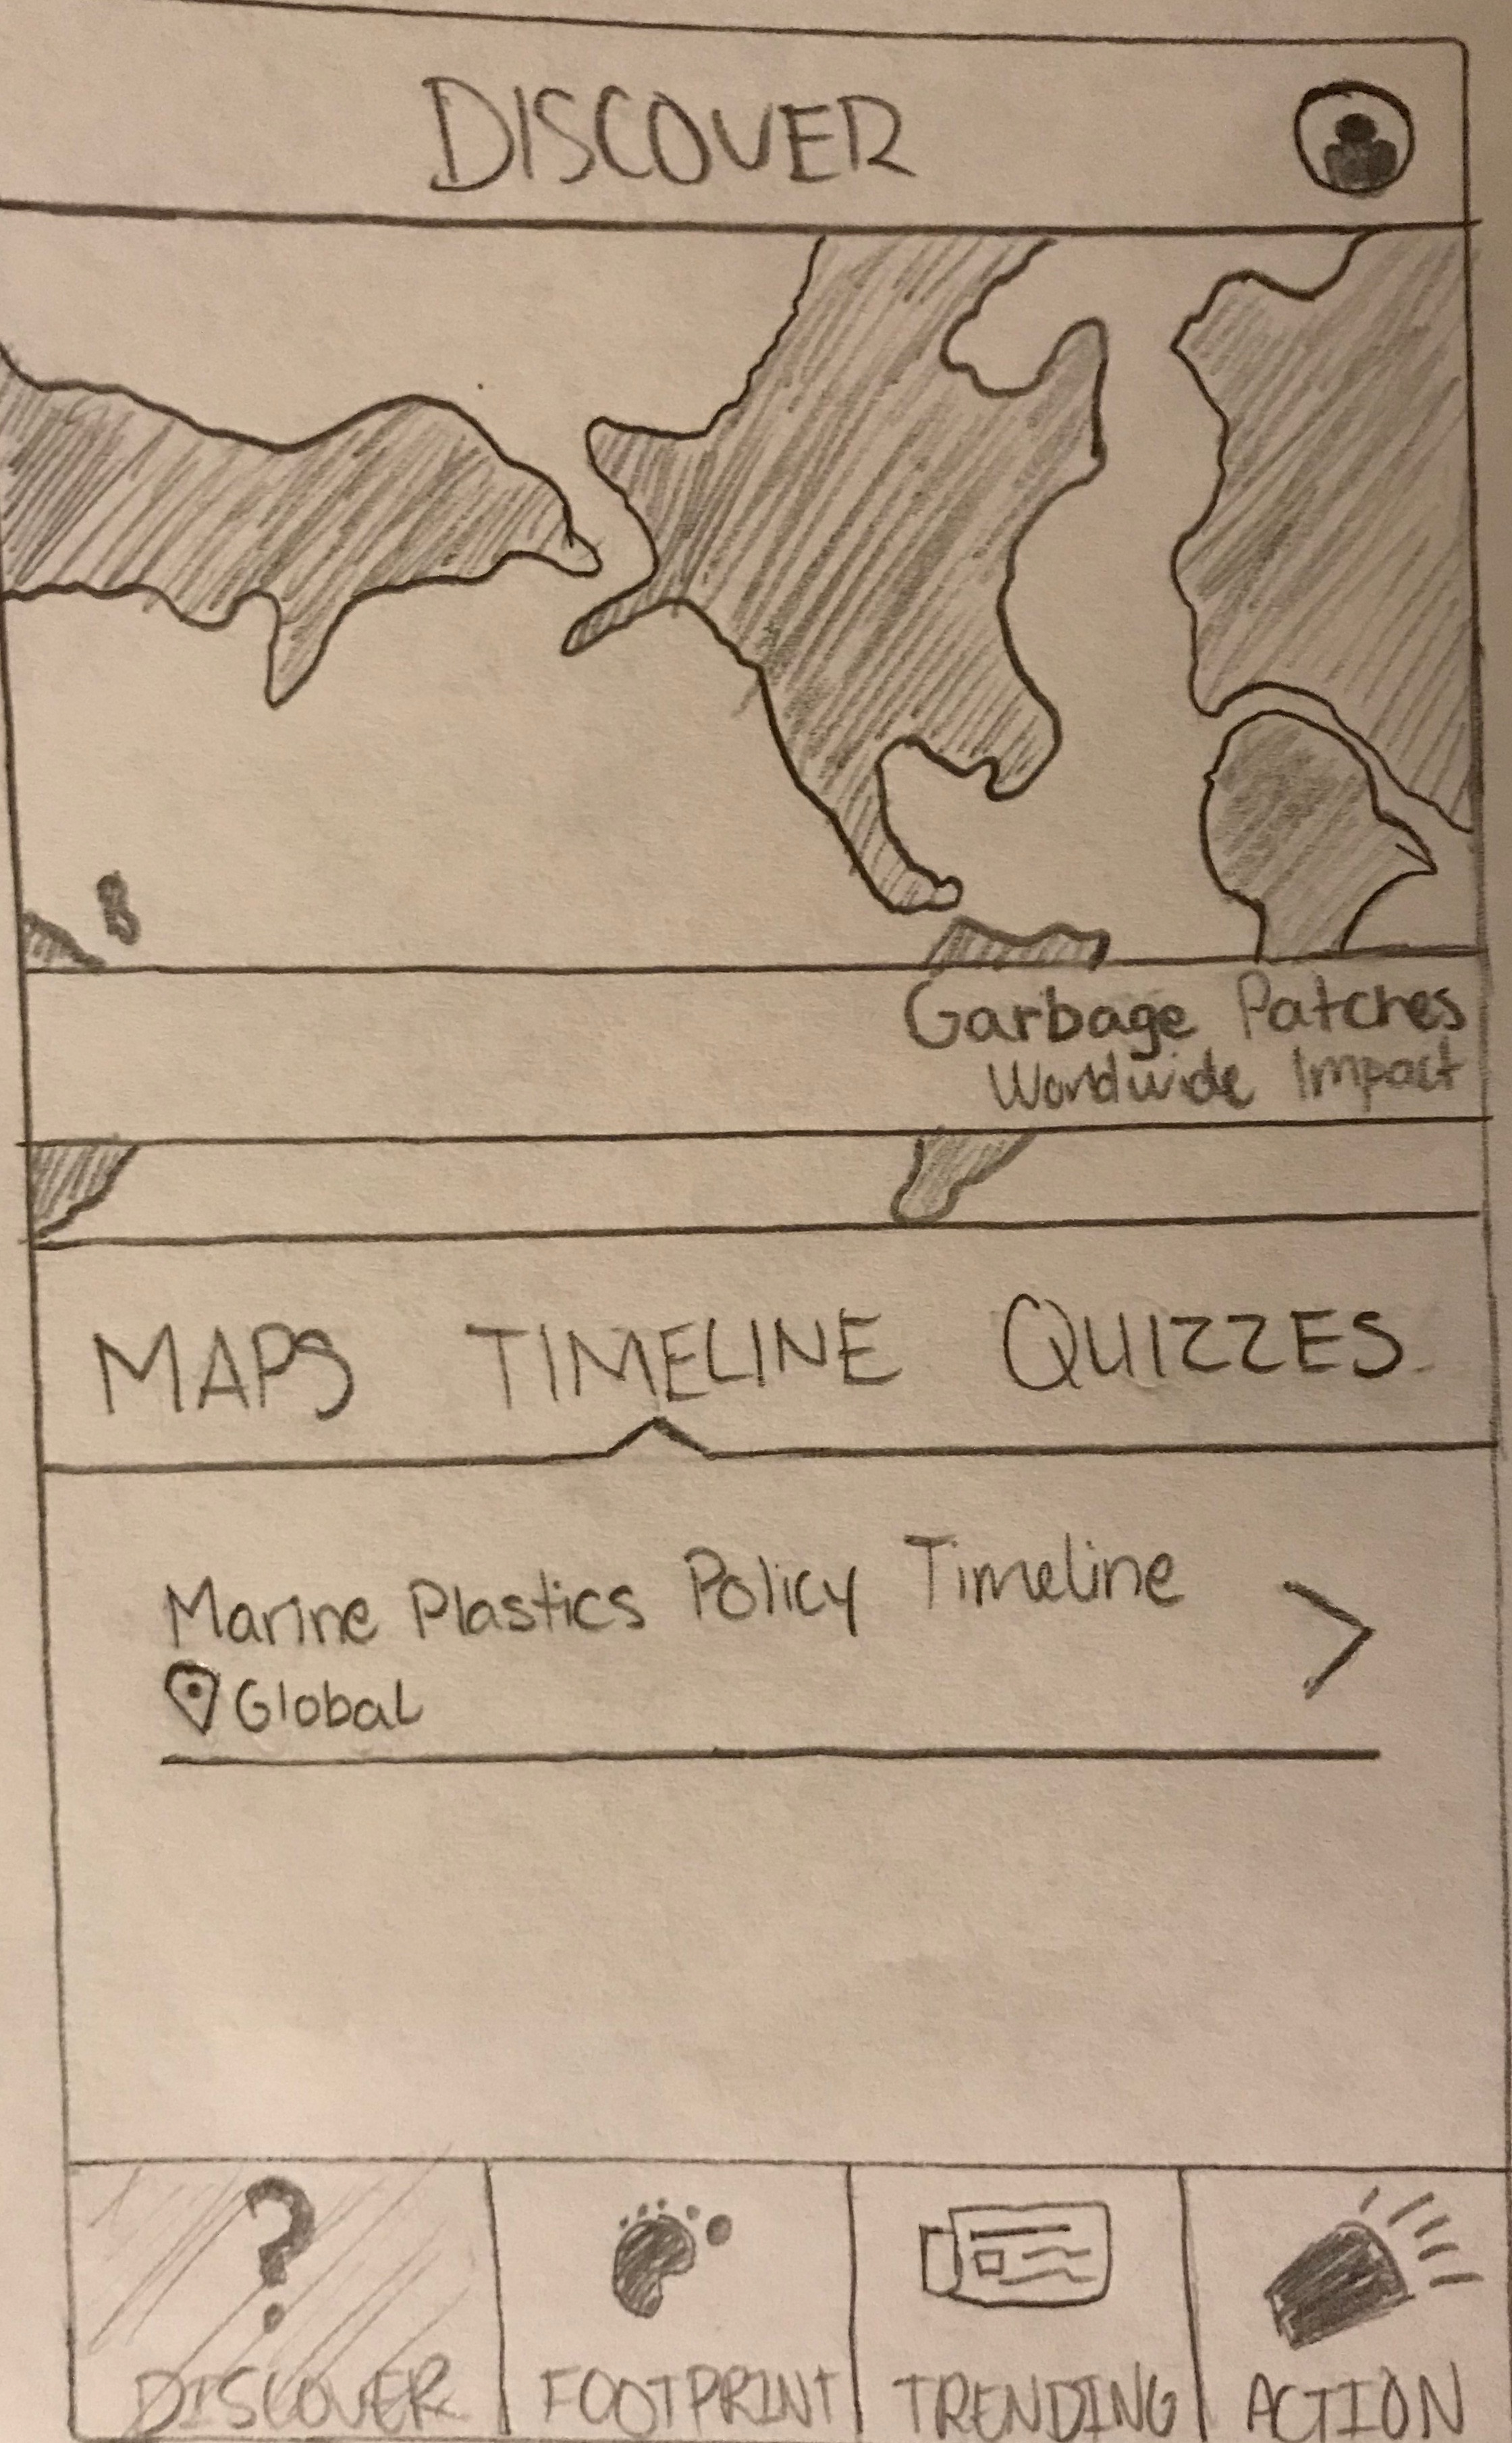 DISCOVER
Garbage Patches
Worldwide Impact
MAPS TIMELINE QUIZZES
Marine Plastics Policy Timeline
Global
DISCOVER FOOTPRINT TRENDING ACTION